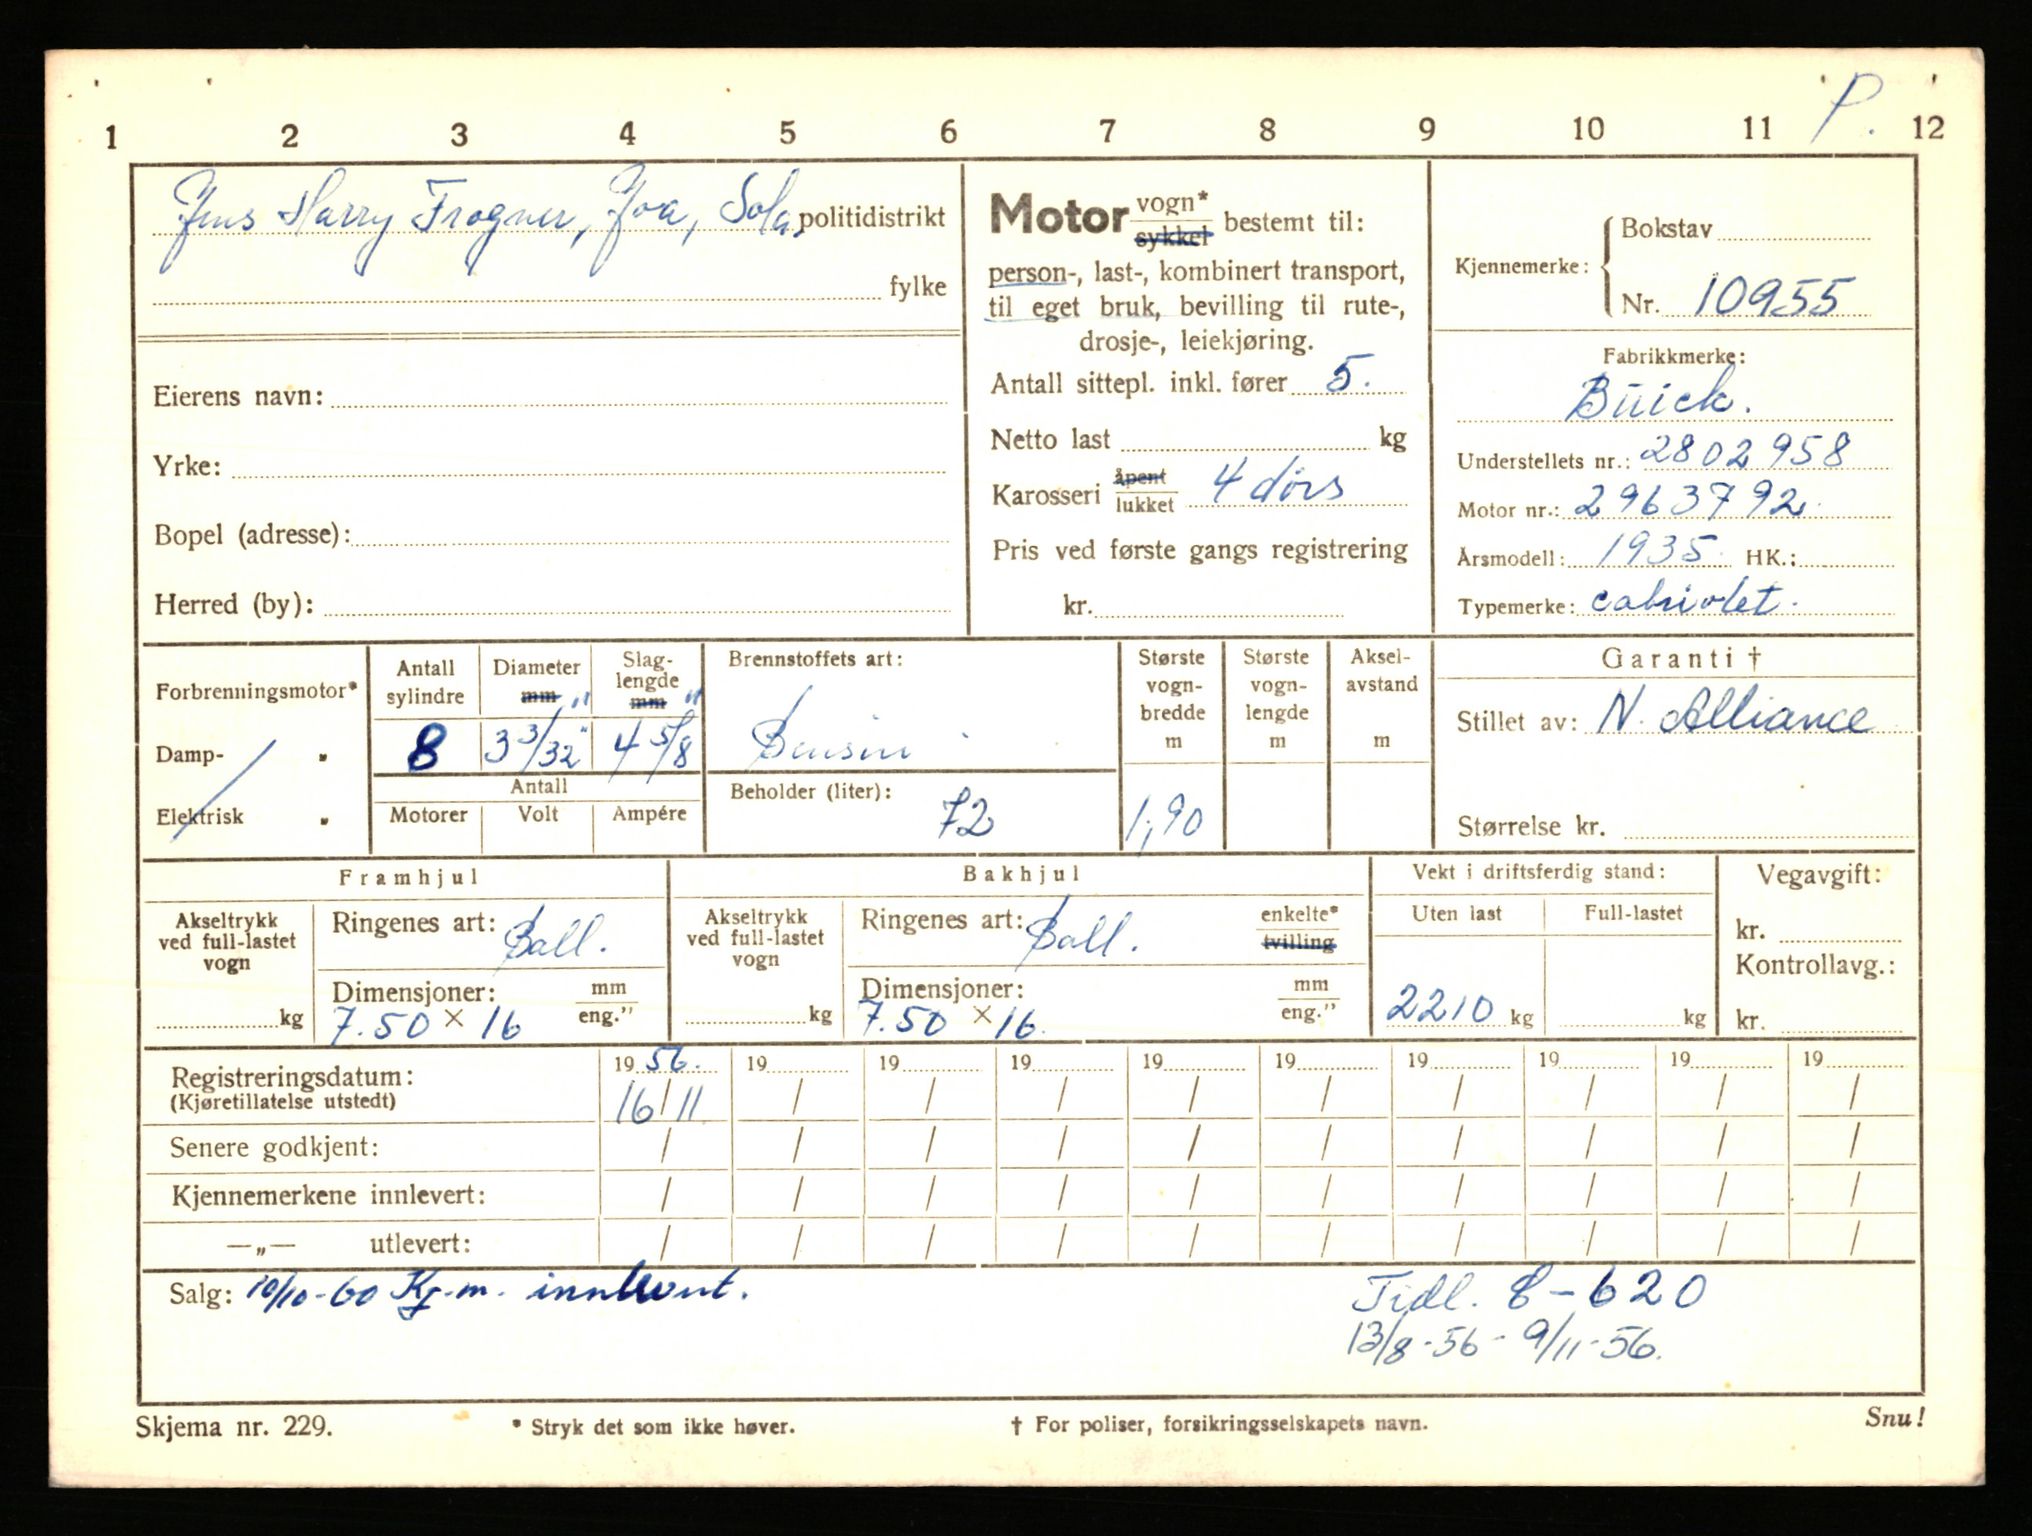 P.
1 2 3 4 5 6 7 8 9 10 11 12
Jens Harry Frogner, Joa, Sola, politidistrikt
fylke
Eierens navn:
Yrke:
Bopel (adresse):
Herred (by):
Motor vogn* sykkel bestemt til:
person-, last-, kombinert transport,
til eget bruk, bevilling til rute-,
drosje-, leiekjøring.
Antall sittepl. inkl. fører 5.
Netto last kg
Karosseri åpent lukket 4 dørs
Pris ved første gangs registrering
kr.
Kjennemerke: Bokstav
Nr. 10955
Fabrikkmerke:
Buick.
Understellets nr.: 2802958
Motor nr.: 2963792.
Årsmodell: 1935 HK.:
Typemerke: cabriolet.
Forbrenningsmotor*
Damp- "
Elektrisk "
Antall sylindre
8
Diameter mm "
3 3/32"
Slag-lengde mm "
4 5/8
Antall
Motorer Volt Ampére
Brennstoffets art:
Bensin
Beholder (liter):
72
Største vogn-bredde m
1,90
Største vogn-lengde m
Aksel-avstand m
Garanti †
Stillet av: N. Alliance
Størrelse kr.
Framhjul
Akseltrykk ved full-lastet vogn
kg
Ringenes art: Ball.
Dimensjoner: mm eng."
7.50 × 16
Bakhjul
Akseltrykk ved full-lastet vogn
kg
Ringenes art: Ball. enkelte* tvilling
Dimensjoner: mm eng."
7.50 × 16.
Vekt i driftsferdig stand:
Uten last Full-lastet
2210 kg kg
Vegavgift:
kr.
Kontrollavg.:
kr.
Registreringsdatum: 19 56. 19 19 19 19 19 19 19 19 19
(Kjøretillatelse utstedt) 16/11 / / / / / / / / /
Senere godkjent: / / / / / / / / / /
Kjennemerkene innlevert: / / / / / / / / / /
—„— utlevert: / / / / / / / / / /
Salg: 10/10-60 Kj.m. innlevert.
Tidl. 8-620
13/8-56 - 9/11-56.
Skjema nr. 229.
* Stryk det som ikke høver.
† For poliser, forsikringsselskapets navn.
Snu!